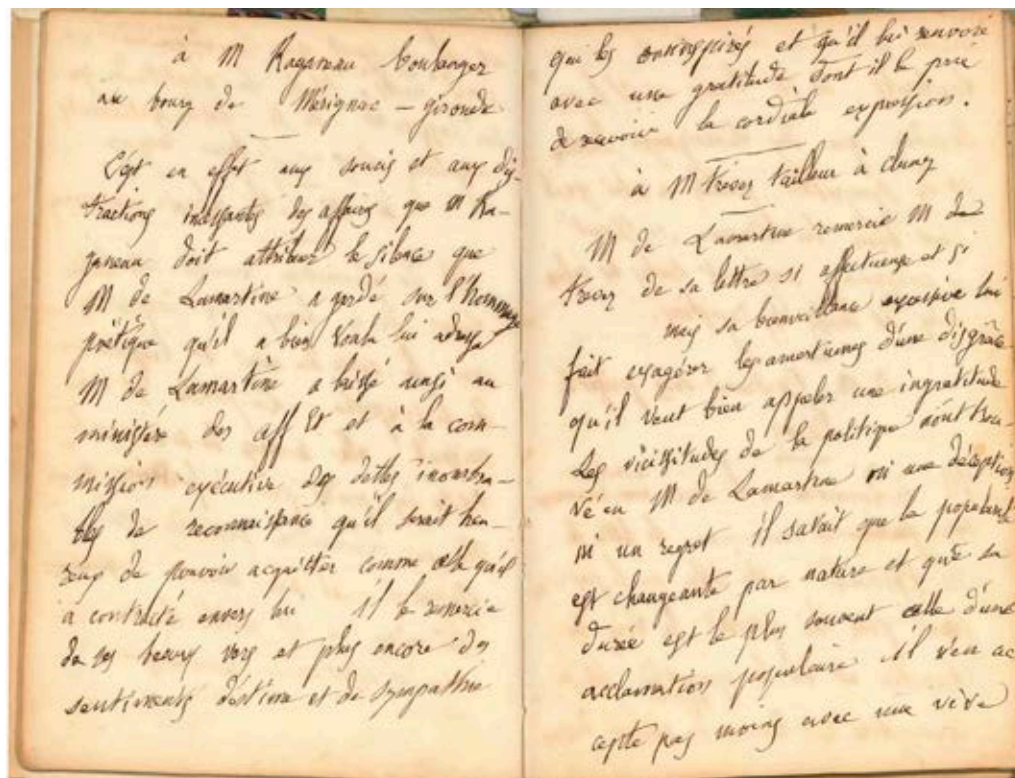 à M Raganeau boulanger
au bourg de Mérignac – gironde
C'est en effet aux soucis et aux dis-
tractions incessantes des affaires que M Ra-
ganeau doit attribuer le silence que
M de Lamartine a gardé sur l'hommage
poëtique qu'il a bien voulu lui adresser
M de Lamartine a laissé ainsi au
ministère des aff Et et à la com-
mission exécutive des dettes innombra-
bles de reconnaissance qu'il serait heu-
reux de pouvoir acquitter comme celle qu'il
a contracté envers lui il le remercie
de ses beaux vers et plus encore des
sentiments d'estime et de sympathie
qui les ont inspirés et qu'il lui renvoie
avec une gratitude dont il le prie
de recevoir la cordiale expression.
à M trevez tailleur à cluny
M de Lamartine remercie M de
trevez de sa lettre si affectueuse et si
mais sa bienveillance excessive lui
fait exagérer les amertumes d'une disgrâce
qu'il veut bien appeler une ingratitude
Les vicissitudes de la politique n'ont trou-
vé en M de Lamartine ni une déception
ni un regret il savait que la popularité
est changeante par nature et que sa
durée est le plus souvent celle d'une
acclamation populaire il n'en ac
cepte pas moins avec une vive